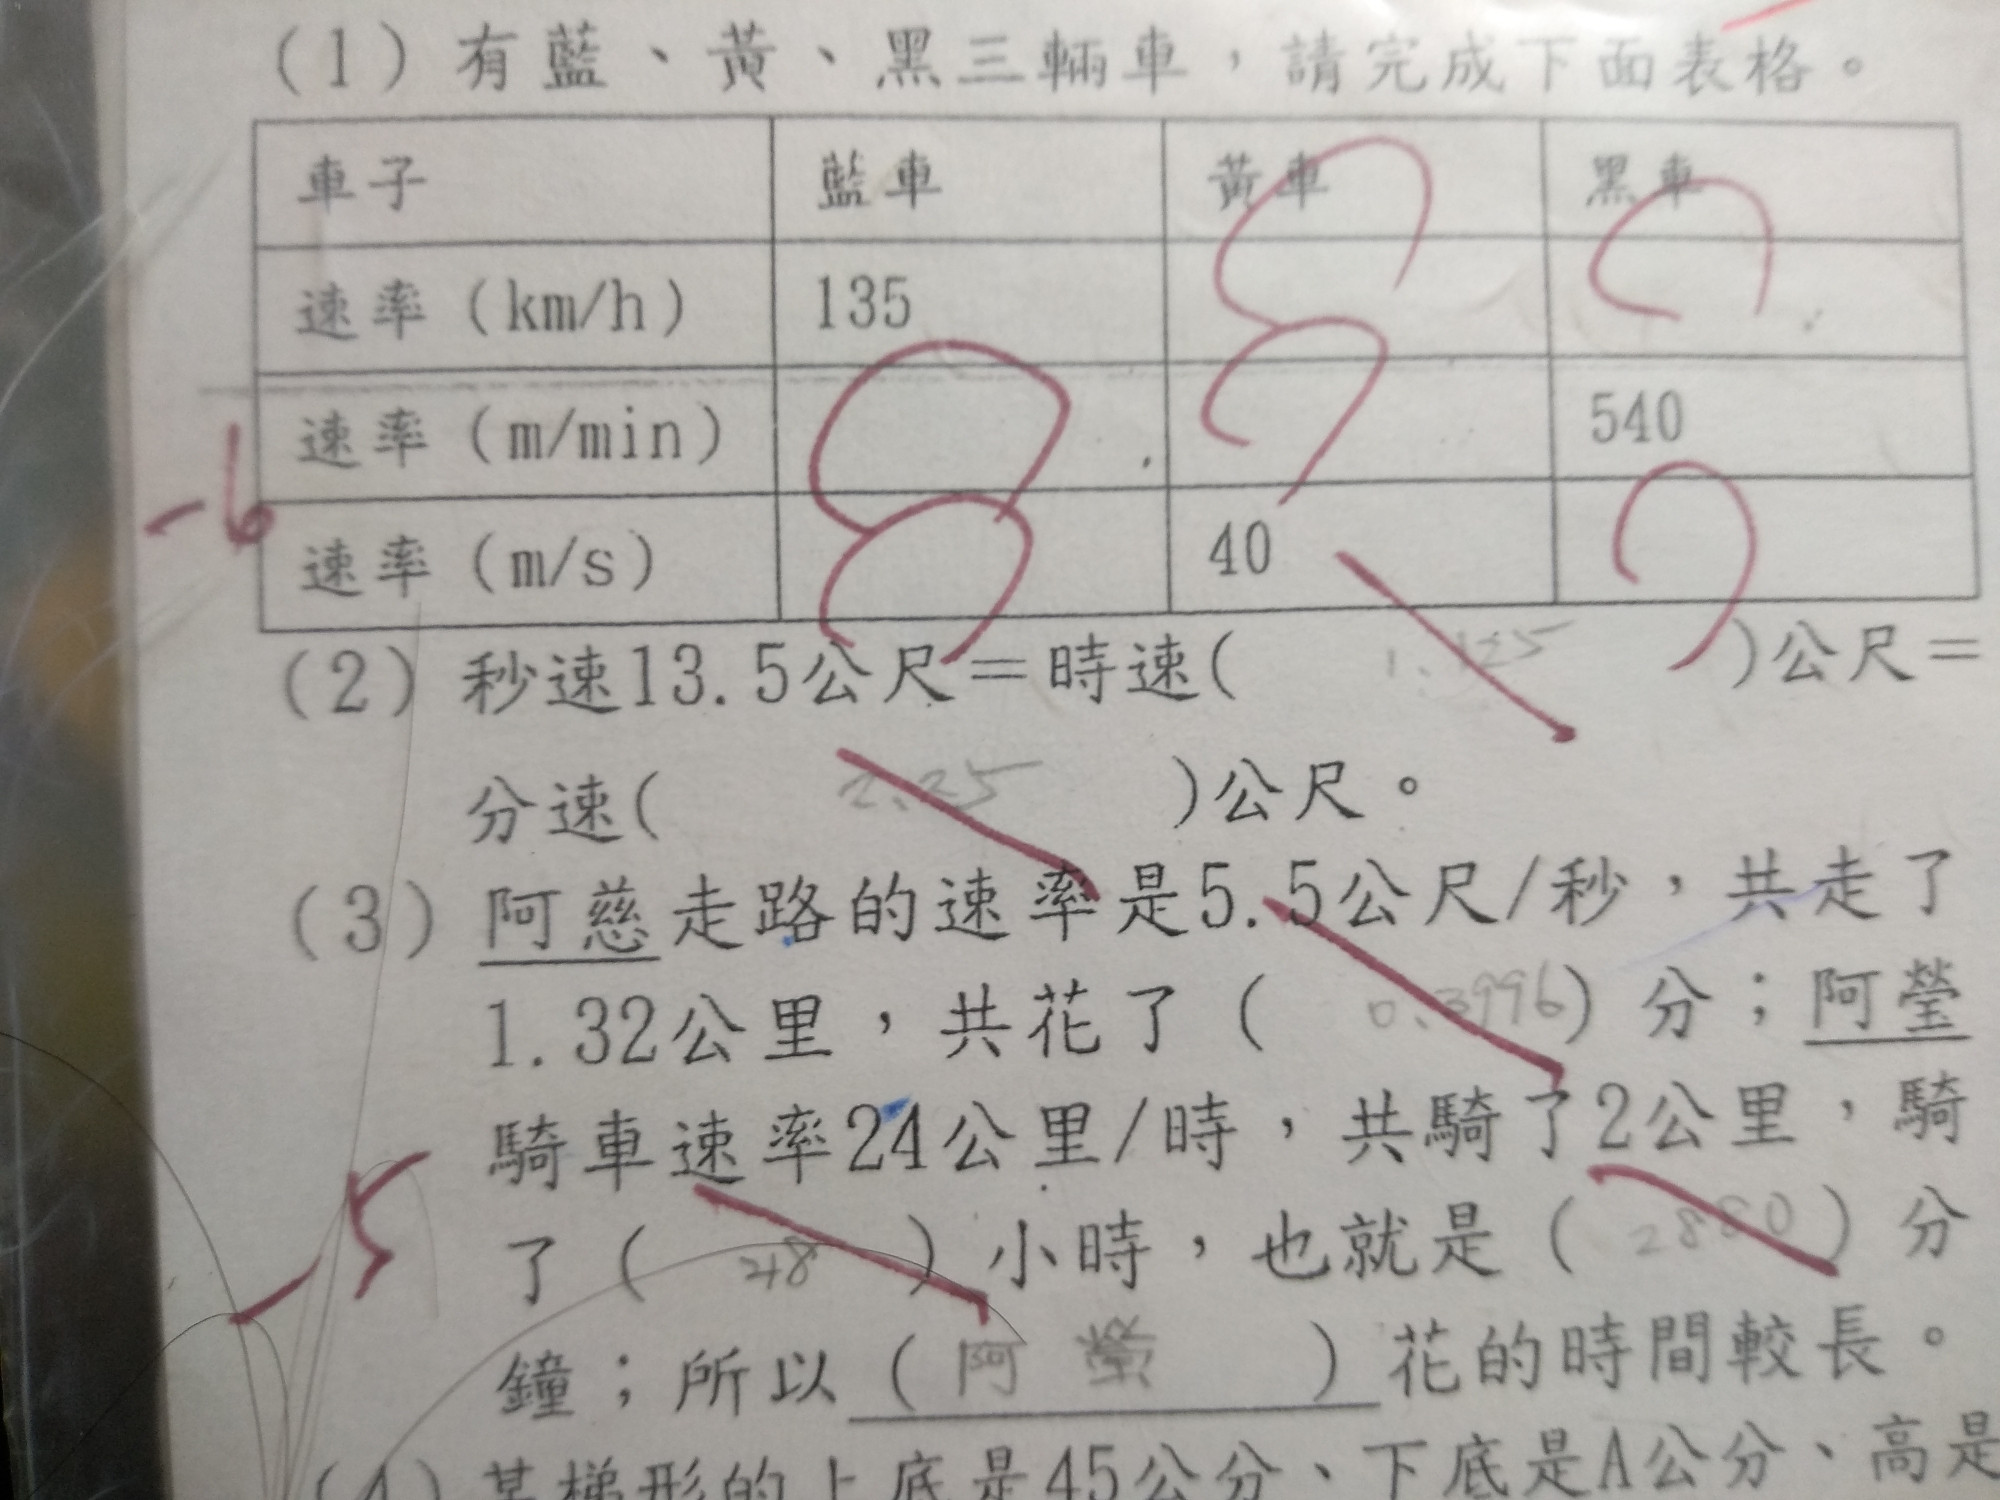 (1)有藍、黃、黑三輛車，請完成下面表格。
車子 藍車 黃車 黑車
速率(km/h) 135
速率(m/min) 540
-6
速率(m/s) 40
(2)秒速13.5公尺＝時速( 1.125 )公尺＝
分速( 2.25 )公尺。
(3)阿慈走路的速率是5.5公尺/秒，共走了
1.32公里，共花了( 0.3996)分；阿瑩
騎車速率24公里/時，共騎了2公里，騎
-5
了( 48 )小時，也就是( 2880 )分
鐘；所以(阿瑩 )花的時間較長。
(4)某梯形的上底是45公分、下底是A公分、高是